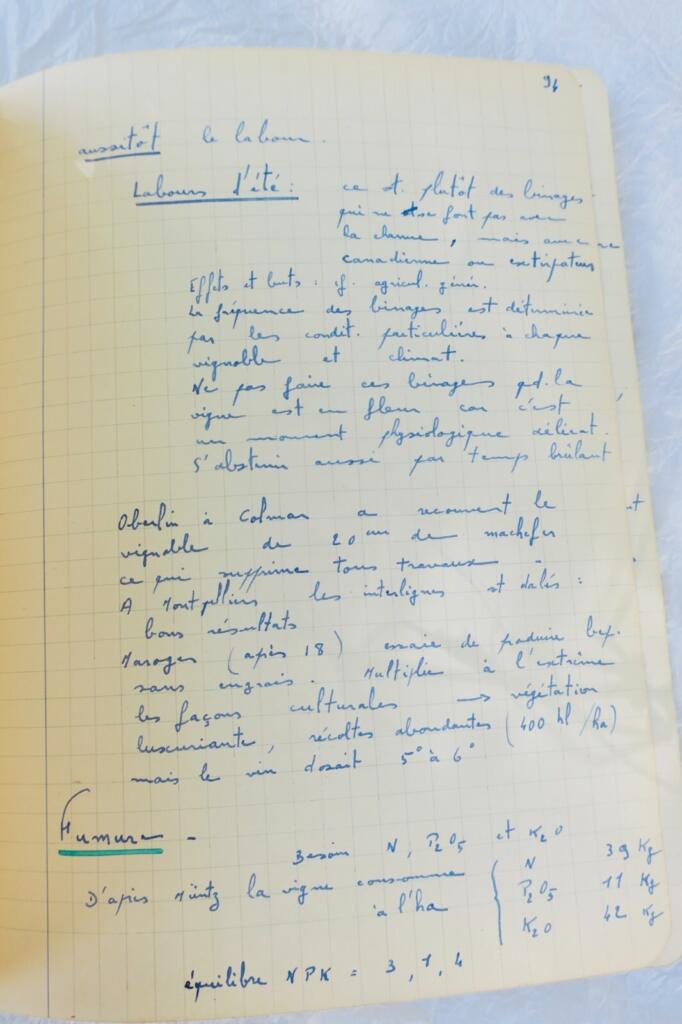 94
aussitôt le labour.
Labours d'été : ce st. plutôt des binages
qui ne se font pas avec
la charrue, mais avec une
canadienne ou extirpateur
Effets et buts : cf. agricul. génér.
La fréquence des binages est déterminée
par les condit. particulières à chaque
vignoble et climat.
Ne pas faire ces binages pd. la
vigne est en fleur car c'est
un moment physiologique délicat.
S'abstenir aussi par temps brûlant
Oberlin à Colmar a recouvert le
vignoble de 20 cm de machefer
ce qui supprime tous travaux
A Montpelliers les interlignes st dalés :
bons résultats
(après 18) essaie de produire bcp.
sans engrais. Multiplie à l'extrême
les façons culturales → végétation
luxuriante, récoltes abondantes (400 hl/ha)
mais le vin dosait 5° à 6°
Fumure -
Besoin N, P2O5 et K2O
D'après Müntz la vigne consomme
à l'ha
N 39 Kg
P2O5 11 Kg
K2O 42 Kg
équilibre NPK = 3, 1, 4